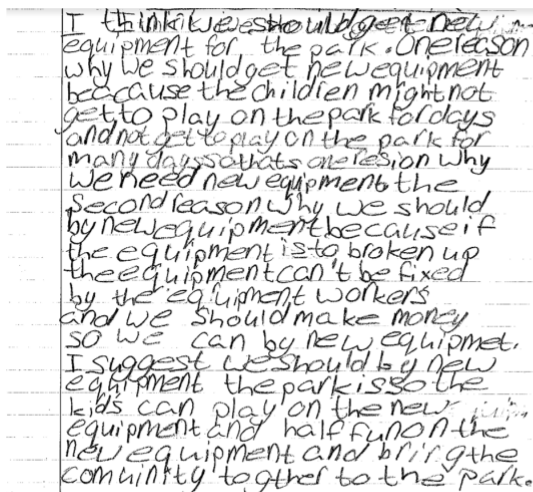 I think we should get new
equipment for the park. One reason
why we should get new equipment
beacause the children might not
get to play on the park for days
and not get to play on the park for
many days so thats one resion why
we need new equipment the
second reason why we should
by new equipment because if
the equipment is to broken up
the equipment can't be fixed
by the equipment workers
and we should make money
so we can by new equipmet.
I suggest we should by new
equipment the park is so the
kids can play on the new
equipment and half fun on the
new equipment and bring the
comuinity togther to the park.